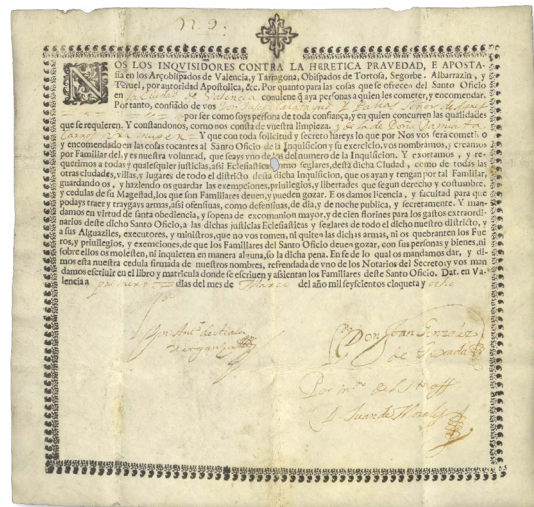 OS LOS INQVISIDORES CONTRA LA HERETICA PRAVEDAD, E APOSTA-
sia en los Arçobispados de Valencia, y Tarragona, Obispados de Tortosa, Segorbe, Albarrazin, y
Teruel, por autoridad Apostolica, &c. Por quanto para las cosas que se ofrecen del Santo Oficio
en la Ciudad de Valencia conuiene q̃ aya personas a quien les cometer, y encomendar.
Por tanto, confiãdo de vos
por ser como soys persona de toda confiança, y en quien concurren las qualidades
que se requieren. Y constandonos, como nos consta de vuestra limpieza,
Y que con toda solicitud y secreto hareys lo que por Nos vos sera cometido
y encomendado en las cosas tocantes al Santo Oficio de la Inquisicion y su exercicio, vos nombramos, y creamos
por Familiar del, y es nuestra voluntad, que seays vno de los del numero de la Inquisicion. Y exortamos, y re-
querimos a todas y qualesquier justicias, assi Eclesiasticas como seglares, desta dicha Ciudad, como de todas las
otras ciudades, villas, y lugares de todo el distrito desta dicha Inquisicion, que os ayan y tengan por tal Familiar,
guardando os, y haziendo os guardar las exempciones, priuilegios, y libertades que segun derecho y costumbre,
y cedulas de su Magestad, los que son Familiares deuen, y pueden gozar. E os damos licencia, y facultad para que
podays traer y traygays armas, assi ofensiuas, como defensiuas, de dia, y de noche publica, y secretamente. Y man-
damos en virtud de santa obediencia, y sopena de excomunion mayor, y de cien florines para los gastos extraordi-
narios deste dicho Santo Oficio, a las dichas justicias Eclesiasticas y seglares de todo el dicho nuestro districto, y
a sus Alguaziles, executores, y ministros, que no vos tomen, ni quiten las dichas armas, ni os quebranten los Fue-
ros, y priuilegios, y exempciones, de que los Familiares del Santo Oficio deuen gozar, con sus personas y bienes, ni
sobre ellos os molesten, ni inquieten en manera alguna, so la dicha pena. En fe de lo qual os mandamos dar, y di-
mos esta nuestra cedula firmada de nuestros nombres, refrendada de vno de los Notarios del Secreto: y vos man
damos escriuir en el libro y matricula donde se escriuen y assientan los Familiares deste Santo Oficio. Dat. en Va-
lencia a primero dias del mes de Março del año mil seyscientos cinqueta y ocho
Don Joan Gonzalez